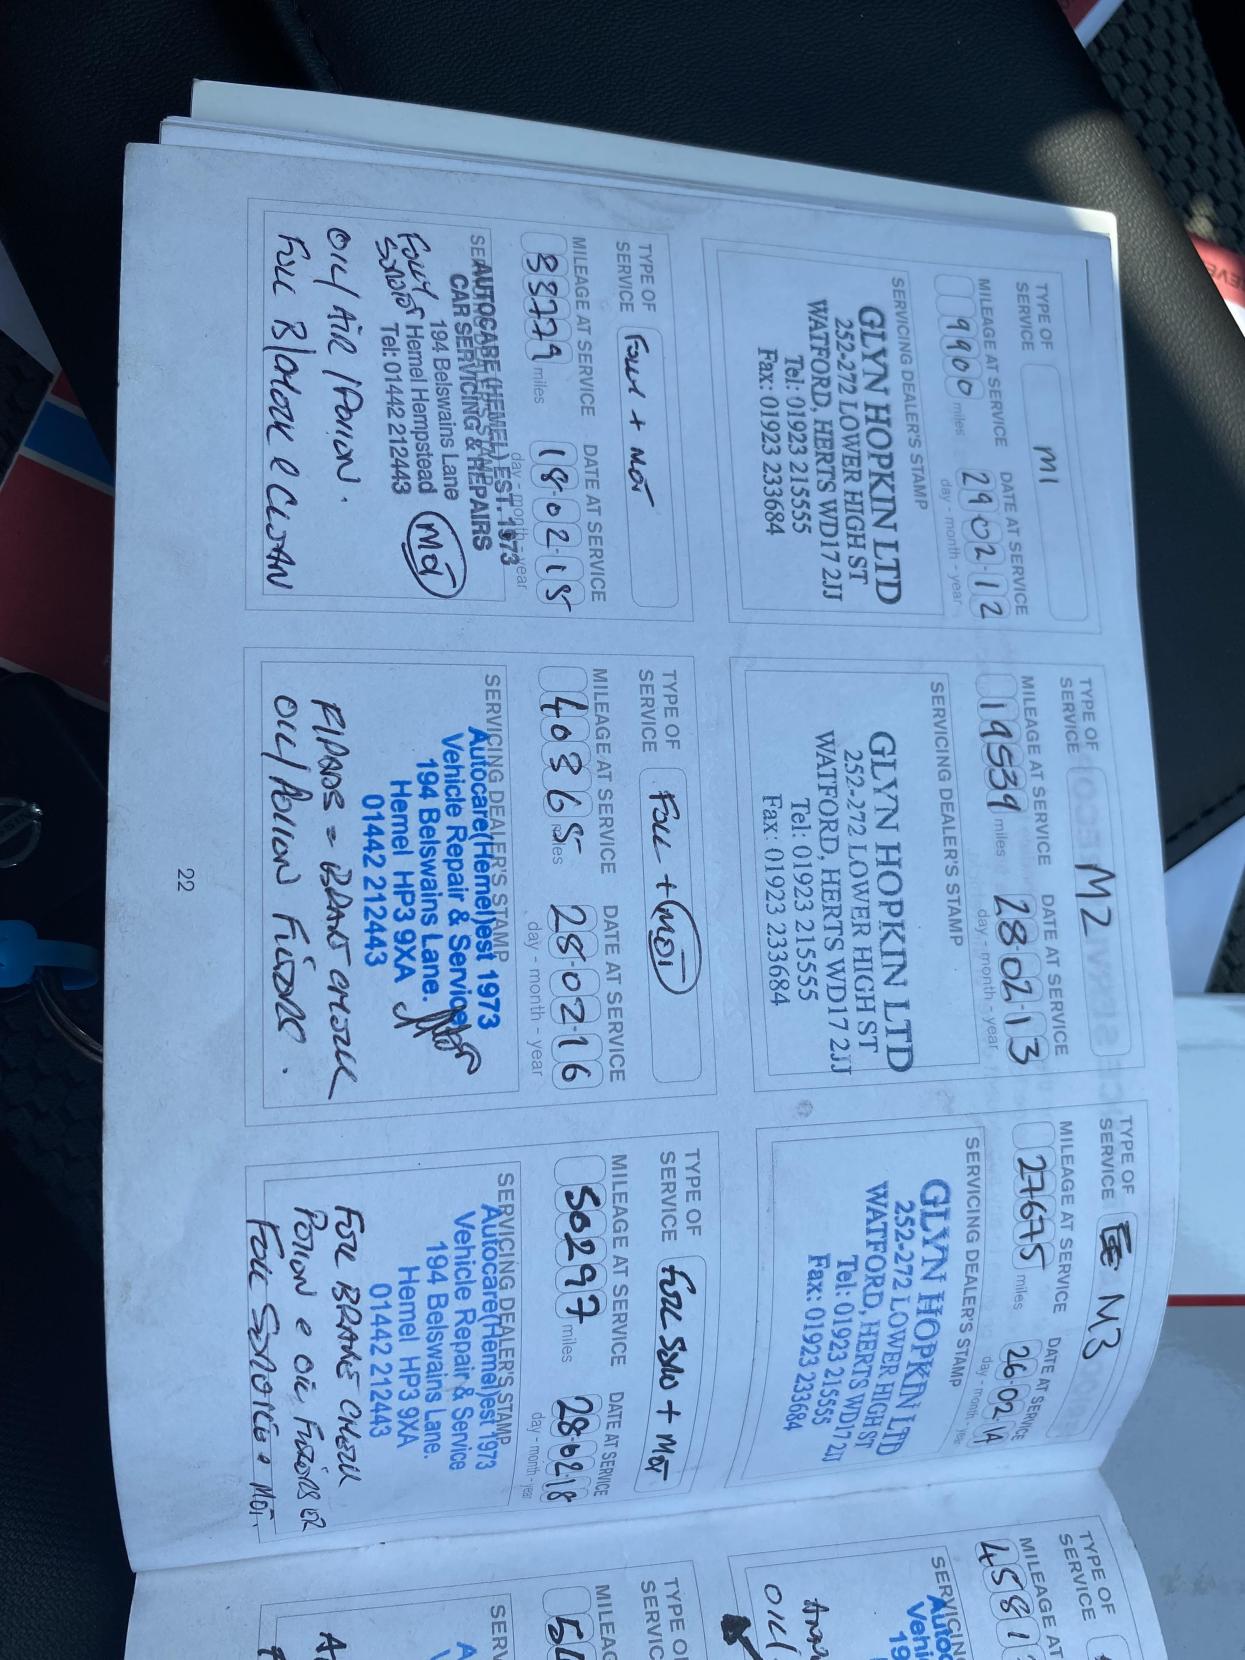 TYPE OF
SERVICE
M1
MILEAGE AT SERVICE DATE AT SERVICE
9900 miles 29 02 12
day - month - year
SERVICING DEALER'S STAMP
GLYN HOPKIN LTD
252-272 LOWER HIGH ST
WATFORD, HERTS WD17 2JJ
Tel: 01923 215555
Fax: 01923 233684
TYPE OF
SERVICE
M2
MILEAGE AT SERVICE DATE AT SERVICE
19539 miles 28 02 13
day - month - year
SERVICING DEALER'S STAMP
GLYN HOPKIN LTD
252-272 LOWER HIGH ST
WATFORD, HERTS WD17 2JJ
Tel: 01923 215555
Fax: 01923 233684
TYPE OF
SERVICE
M3
MILEAGE AT SERVICE DATE AT SERVICE
27675 miles 26 02 14
day - month - year
SERVICING DEALER'S STAMP
GLYN HOPKIN LTD
252-272 LOWER HIGH ST
WATFORD, HERTS WD17 2JJ
Tel: 01923 215555
Fax: 01923 233684
TYPE OF
SERVICE
Full + MOT
MILEAGE AT SERVICE DATE AT SERVICE
33779 miles 18-02-15
day - month - year
AUTOCARE (HEMEL) EST. 1973
CAR SERVICING & REPAIRS
194 Belswains Lane
Hemel Hempstead
Tel: 01442 212443
Fully
MOT
OIL/AIR/POLLON.
FULL BRAKE CLEAN
TYPE OF
SERVICE
FULL + MOT
MILEAGE AT SERVICE DATE AT SERVICE
40365 miles 28-02-16
day - month - year
SERVICING DEALER'S STAMP
Autocare(Hemel)est 1973
Vehicle Repair & Service
194 Belswains Lane.
Hemel HP3 9XA
01442 212443
BRAKE CHECK
OIL/POLLON FILTERS.
TYPE OF
SERVICE
FULL SERV + MOT
MILEAGE AT SERVICE DATE AT SERVICE
50297 miles 28-02-18
day - month - year
SERVICING DEALER'S STAMP
Autocare(Hemel)est 1973
Vehicle Repair & Service
194 Belswains Lane.
Hemel HP3 9XA
01442 212443
FULL BRAKE CHECK
POLLON e OIL FILTERS
FULL SERVICE e MOT.
22
TYPE OF
SERVICE
MILEAGE AT
4581
SERVICING
OIL/
TYPE O
SERVIC
MILEAG
SERV